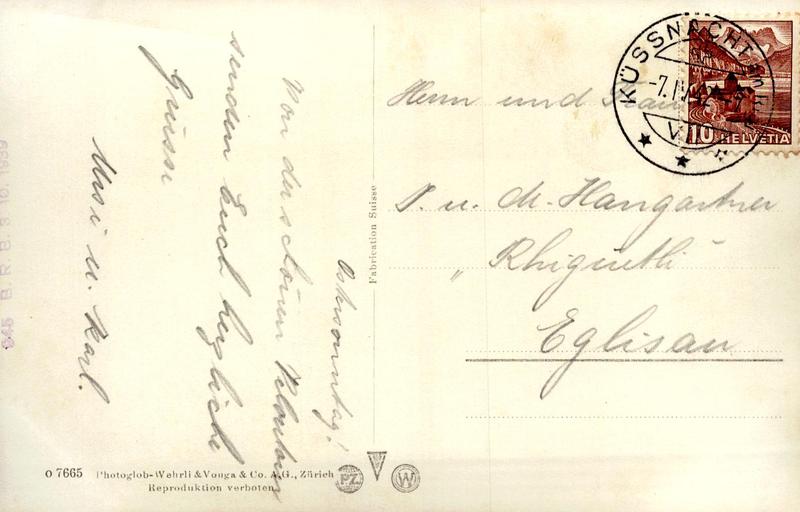 Ostersonntag!
Von der schönen
senden Euch herzliche
Grüsse
Ursi u. Karl.
Herrn und Frau
P. u. M. Hangartner
"Rhiguetli"
Eglisau
KÜSSNACHT am R
-7.IV.42-7
VI
10 HELVETIA
Fabrication Suisse
O 7665 Photoglob-Wehrli & Vouga & Co. A.G., Zürich
Reproduktion verboten
PZ
W
945 B. R. B. 3. 10. 1939